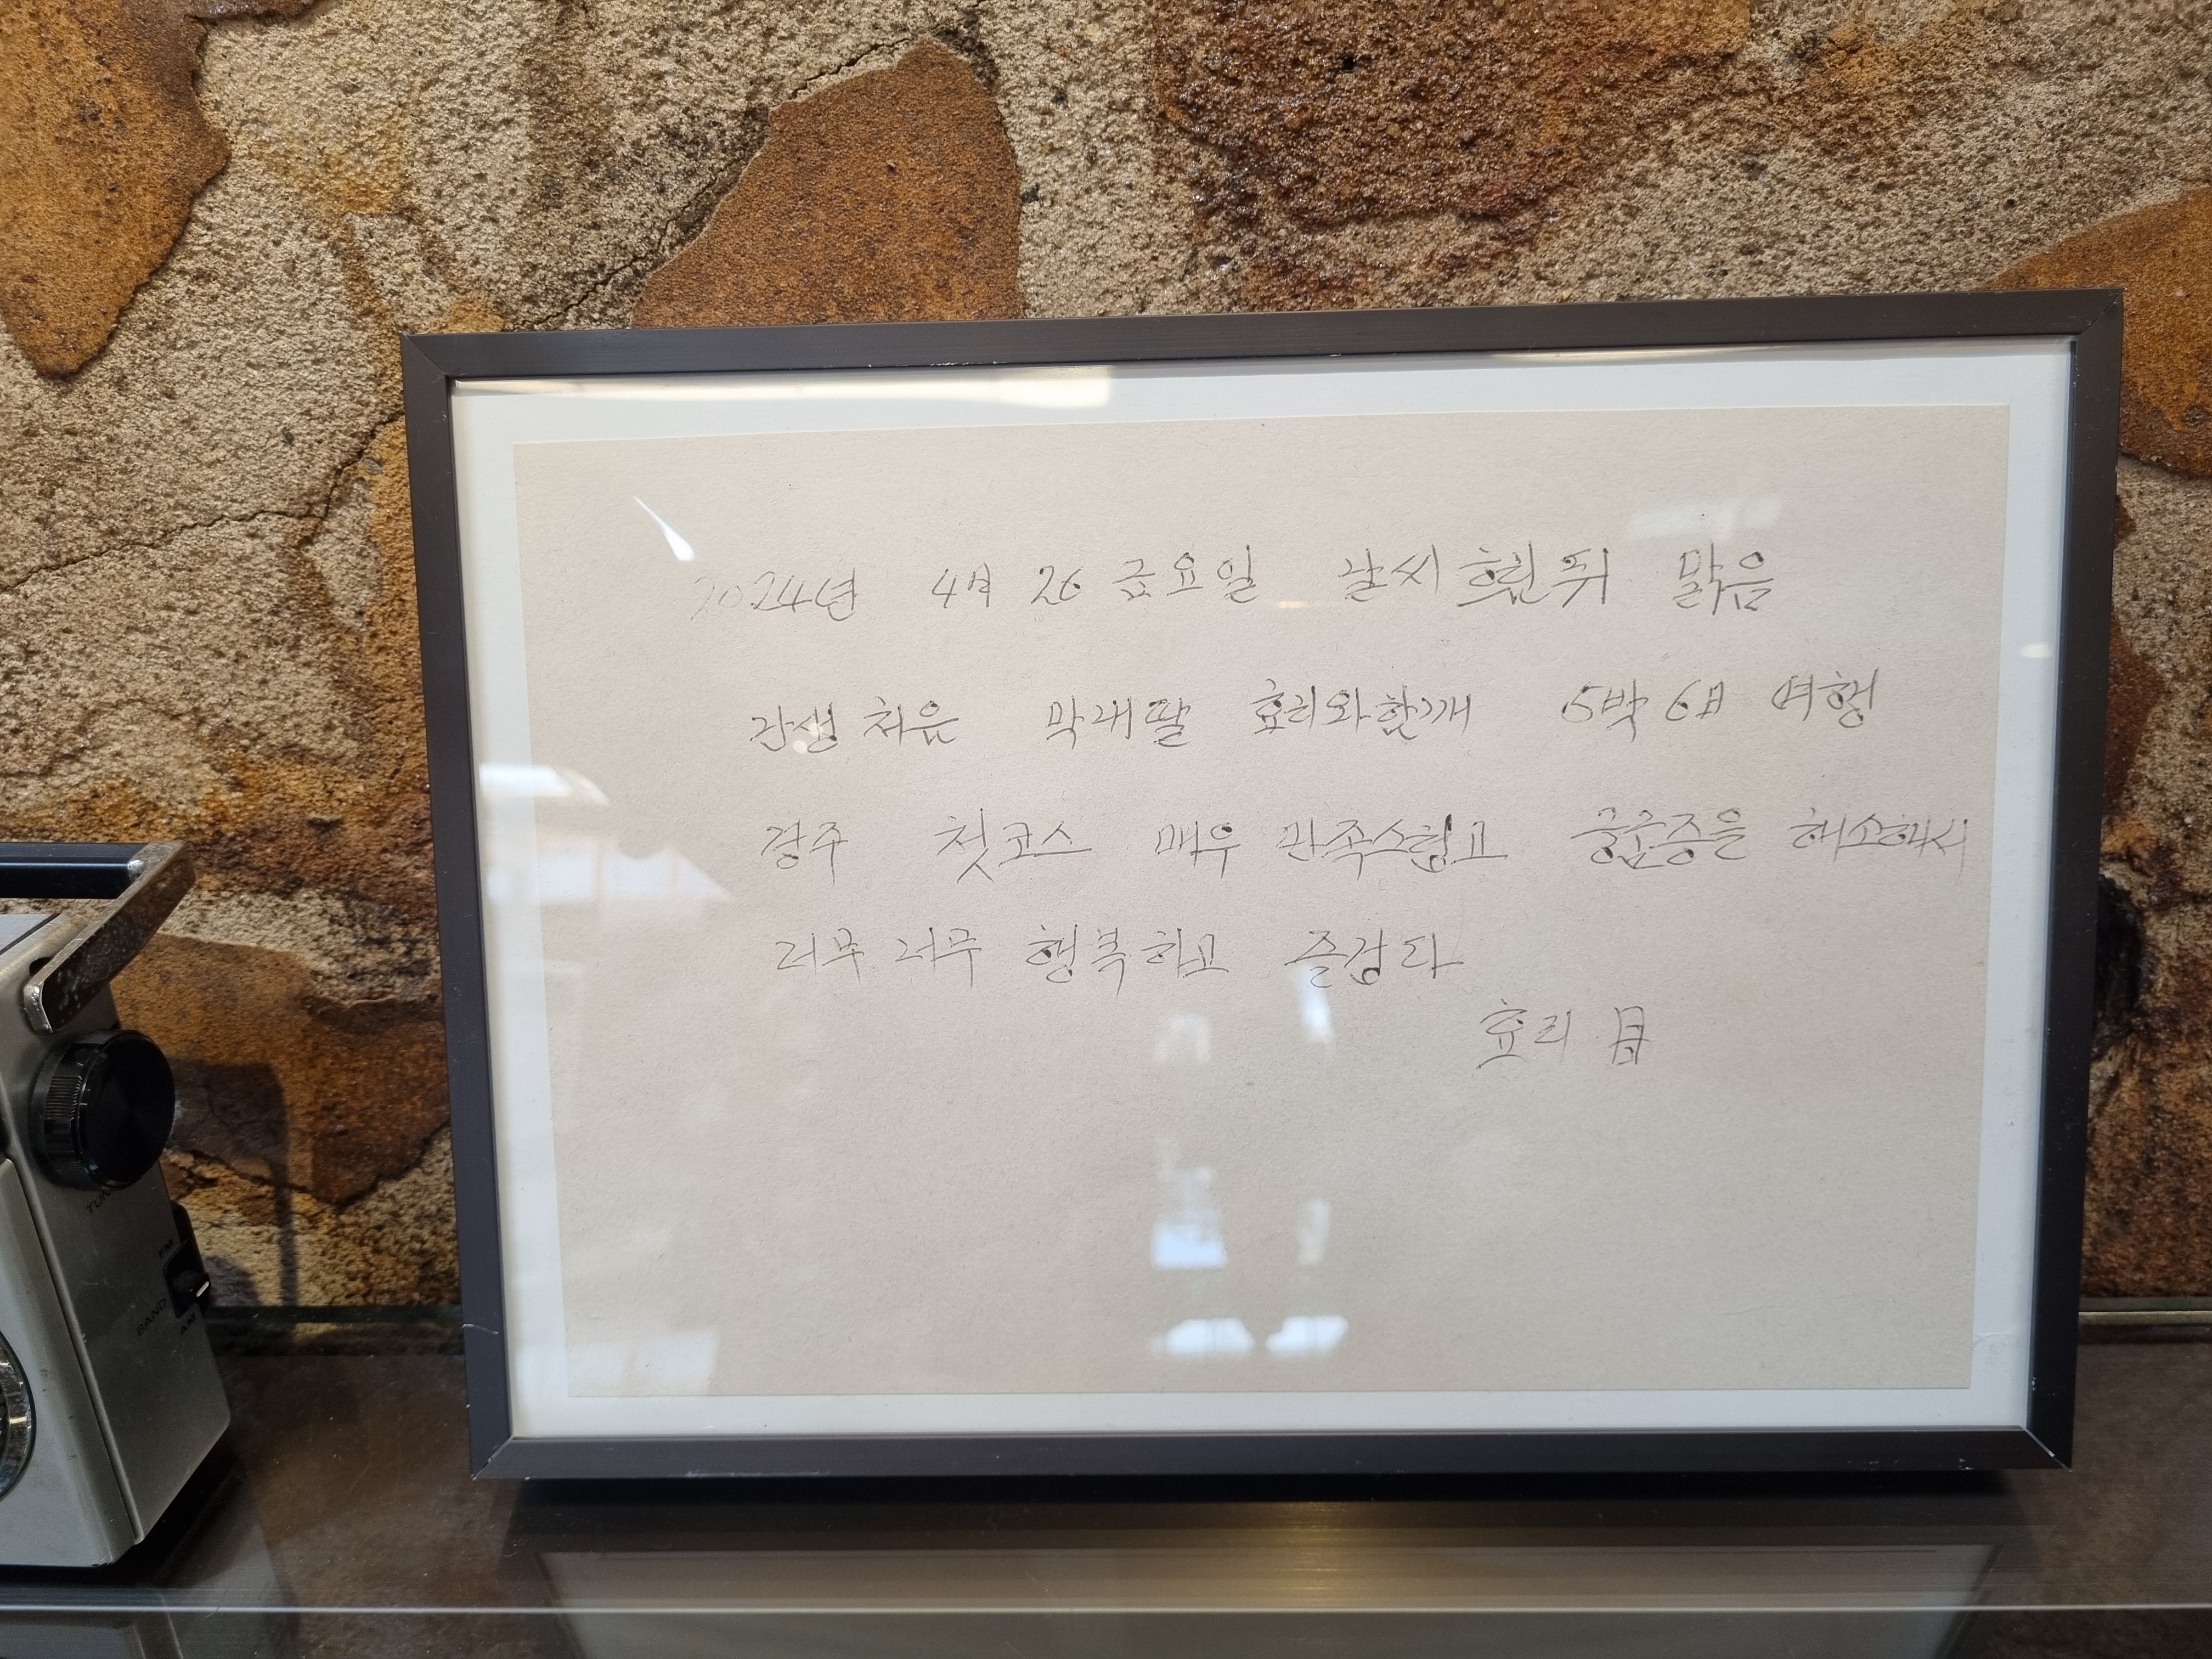 2024년 4月 26 금요일 날씨 흐린뒤 맑음
난생 처음 막내딸 효리와함깨 5박 6日 여행
경주 첫코스 매우 만족스럽고 궁금증을 해소해서
너무 너무 행복하고 즐겁다
효리
TUN
FM
BAND
AM